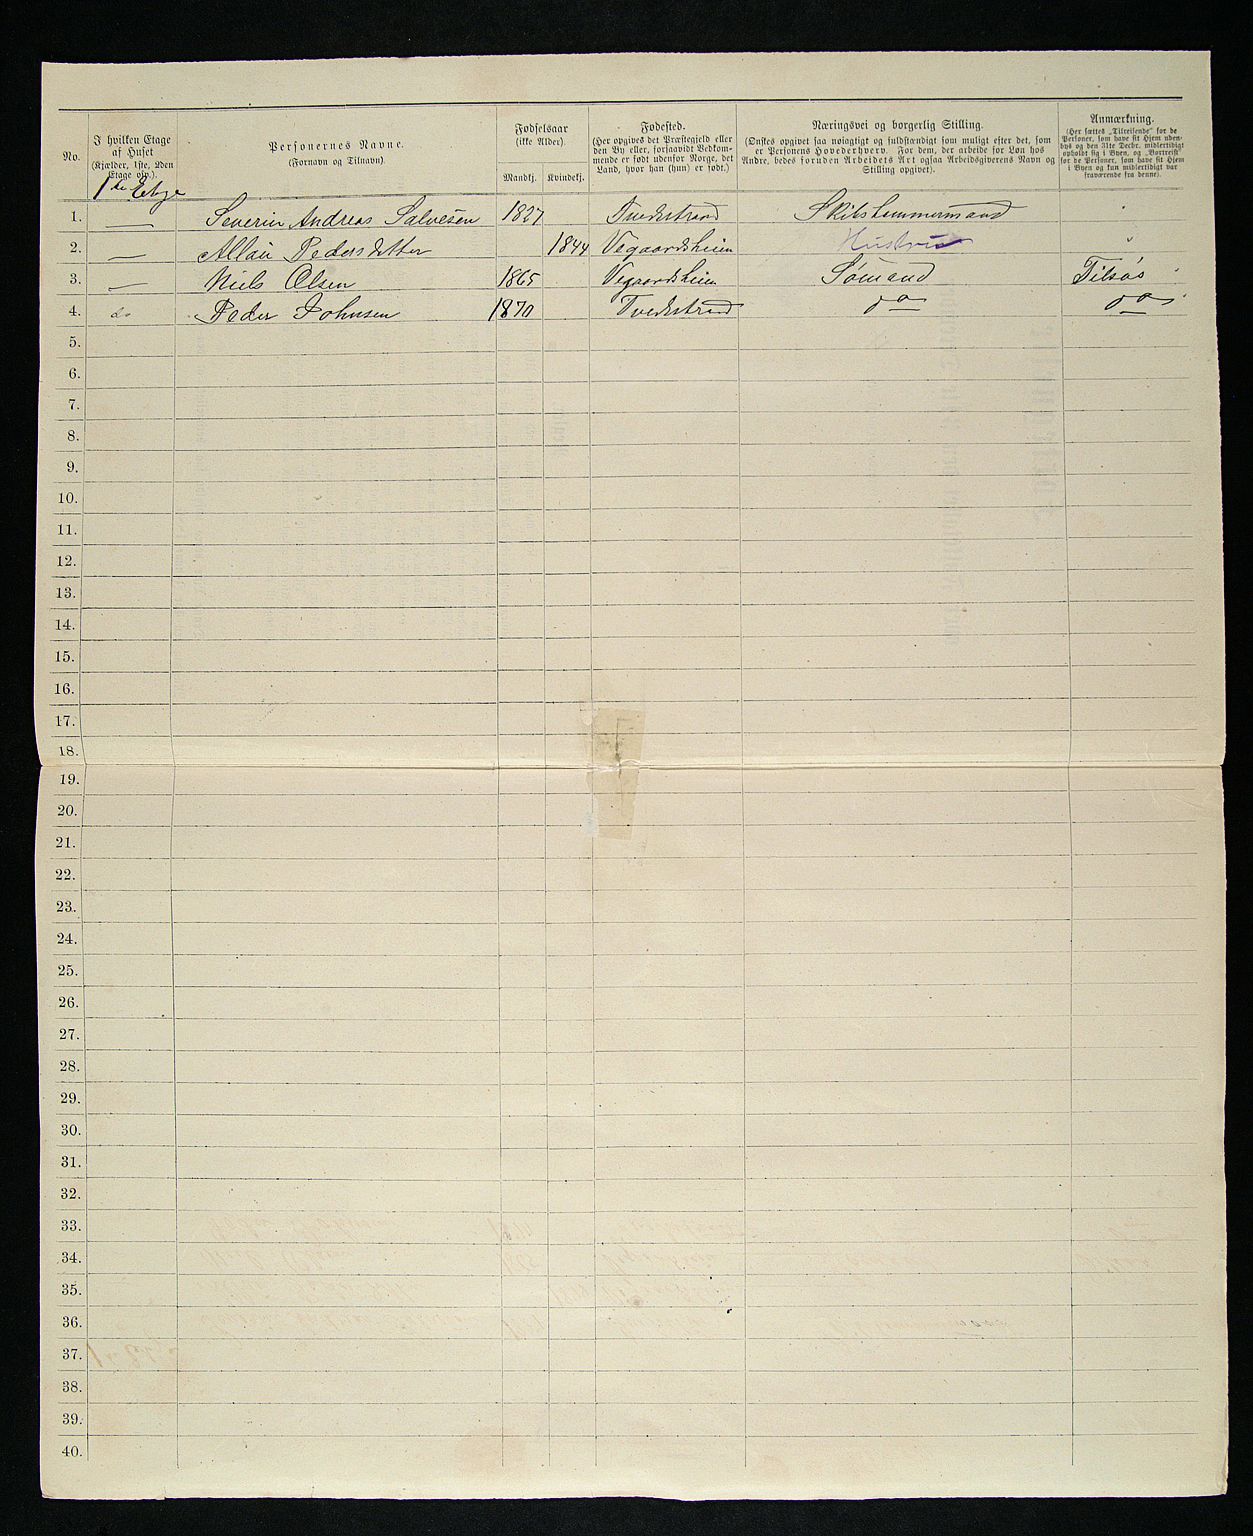 No.
I hvilken Etage
af Huset
(Kjælder, 1ste, 2den
Etage osv.).
Personernes Navne.
(Fornavn og Tilnavn).
Fødselsaar
(ikke Alder).
Mandkj. Kvindekj.
Fødested.
(Her opgives det Præstegjeld eller
den By eller, forsaavidt Vedkom-
mende er født udenfor Norge, det
Land, hvor han (hun) er født.)
Næringsvei og borgerlig Stilling.
(Ønskes opgivet saa nøiagtigt og fuldstændigt som muligt efter det, som
er Personens Hovederhverv. For dem, der arbeide for Løn hos
Andre, bedes foruden Arbeidets Art ogsaa Arbeidsgiverens Navn og
Stilling opgivet).
Anmærkning.
(Her sættes „Tilreisende“ for de
Personer, som have sit Hjem uden-
bys og den 31te Decbr. midlertidigt
opholdt sig i Byen, og „Bortreist“
for de Personer, som have sit Hjem
i Byen og kun midlertidigt var
fraværende fra denne).
1ste Etage
1. — Severin Andreas Salvesen 1827 Tvedestrand Skibstømmermand
2. — Pedersdatter 1844 Vegaardsheim Hustru
3. — Niels Olsen 1865 Vegaardsheim Sømand Tilsøs
4. do Peder Johnsen 1870 Tvedestrand do do
5.
6.
7.
8.
9.
10.
11.
12.
13.
14.
15.
16.
17.
18.
19.
20.
21.
22.
23.
24.
25.
26.
27.
28.
29.
30.
31.
32.
33.
34.
35.
36.
37.
38.
39.
40.